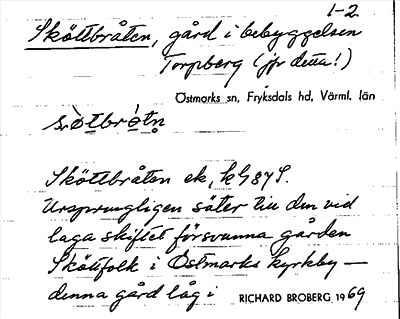 1-2
Sköttbråten, gård i bebyggelsen
Torpberg (jfr detta!)
Östmarks sn, Fryksdals hd, Värml. län
Sköttbråten ek,
Ursprungligen säter till den vid
laga skiftet försvunna gården
Sköttfolk i Östmarks kyrkby —
denna gård låg i RICHARD BROBERG 1969